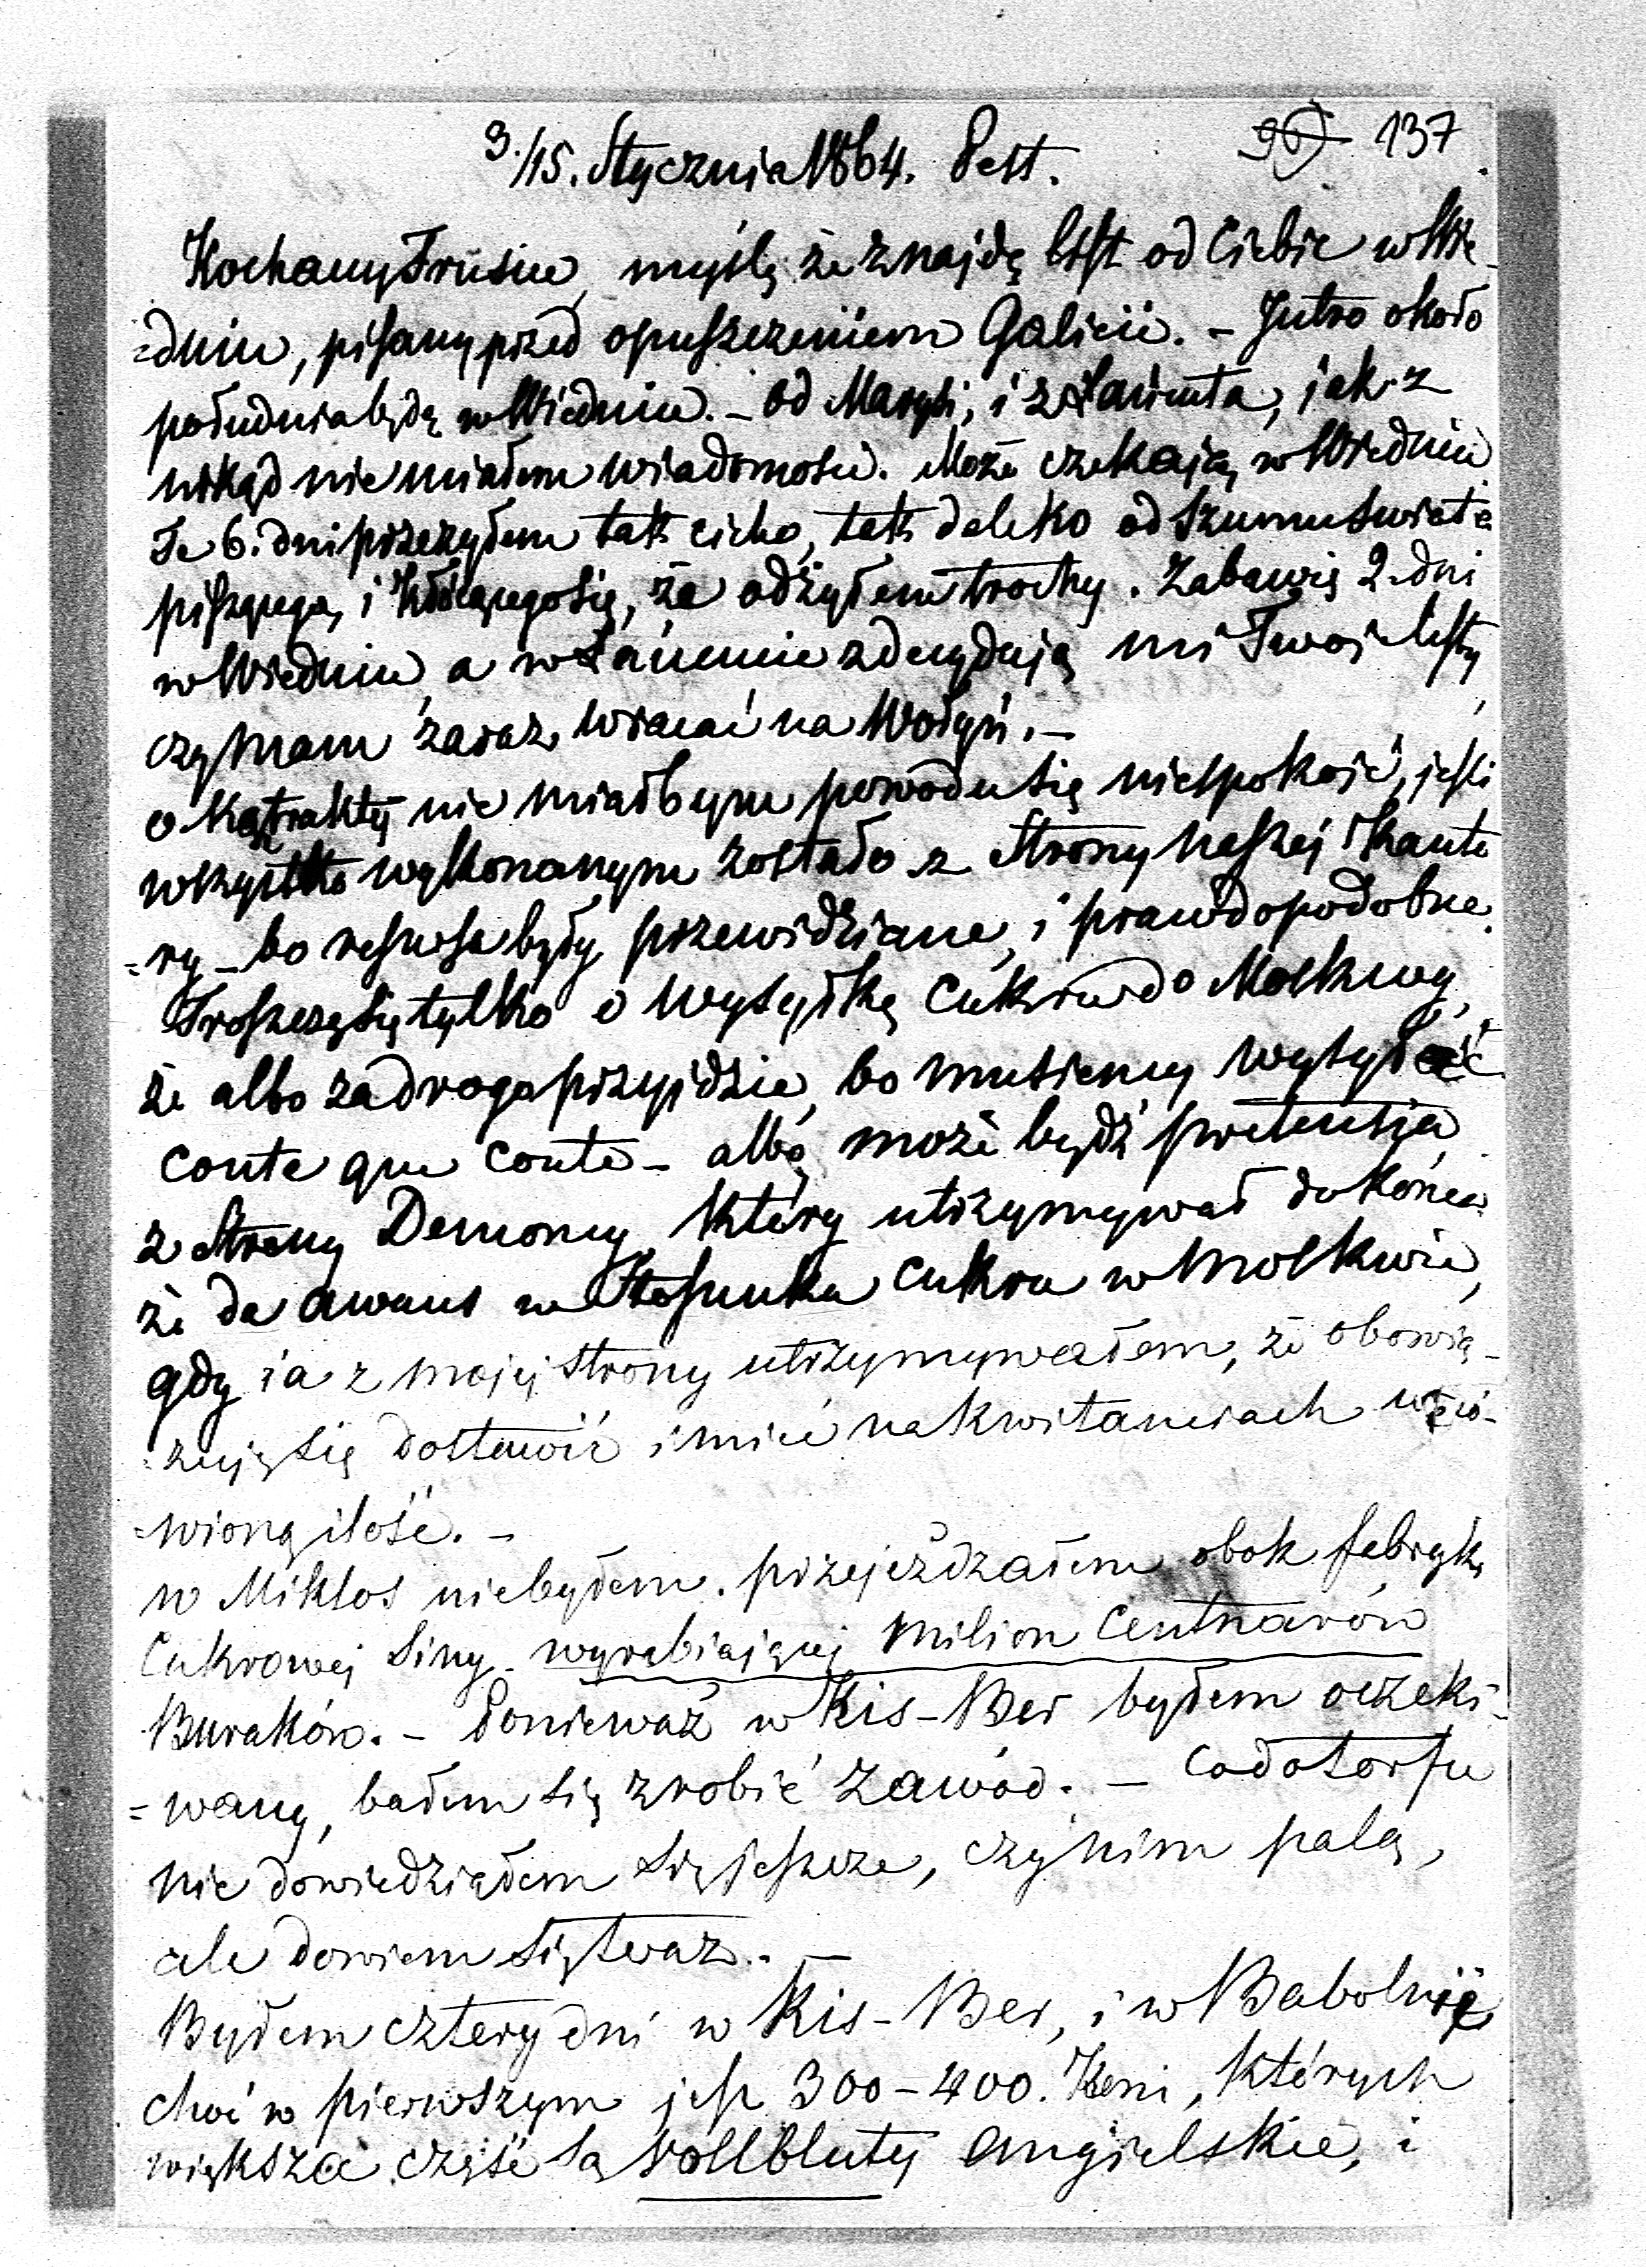 3./15. Stycznia 1864. Pest.
137
Kochany Trusiu, myślę że znajdę list od Ciebie w Wie-
=dniu, pisany przed opuszczeniem Galicii. – Jutro około
południa będę w Wiedniu. – od Marysi, i z Łańcuta, jak z
nikąd nie miałem wiadomości. Może czekają w Wiedniu
Te 6. dni przeżyłem tak cicho, tak daleko od szumu świata
piszącego, i kłócącego się, że odżyłem trochę. Zabawię 2. dni
w Wiedniu, a w Łańcucie zdecydują mi Twoje listy,
czy mam zaraz wracać na Wołyń. –
o kątrakty nie miałbym powodu się niespokoić, jeśli
wszystko wykonanym zostało z strony naszej i Kante
=ry – bo były przewidziane, i prawdopodobne.
Troszczę się tylko o wysyłkę cukru do Moskwy,
że albo za drogo przyjdzie, bo musiemy wysyłać
coute que coute – albo może bydź pretensja
z strony Demony, który utrzymywał do końca
że da awans w stosunku cukru w Moskwie,
gdy ia z mojej strony utrzymywałem, że obowią-
=zuję się dostawić i mieć na kwitanciach umó-
=wioną ilość. –
w Miklos niebyłem. przejeżdżałem obok fabrykę
Cukrowej Siny wyrabiającej Milion Centnarów
Buraków. – Ponieważ w Kis-Ber byłem oczeki-
=wany, bałem się zrobić zawód. – co do torfu
nie dowiedziałem się jeszcze, czy nim palą,
ale dowiem się teraz. –
Byłem cztery dni w Kis-Ber, i w Babolnie
choć w pierwszym jest 300–400. Koni, których
większa część są Vollbluty angielskie, i